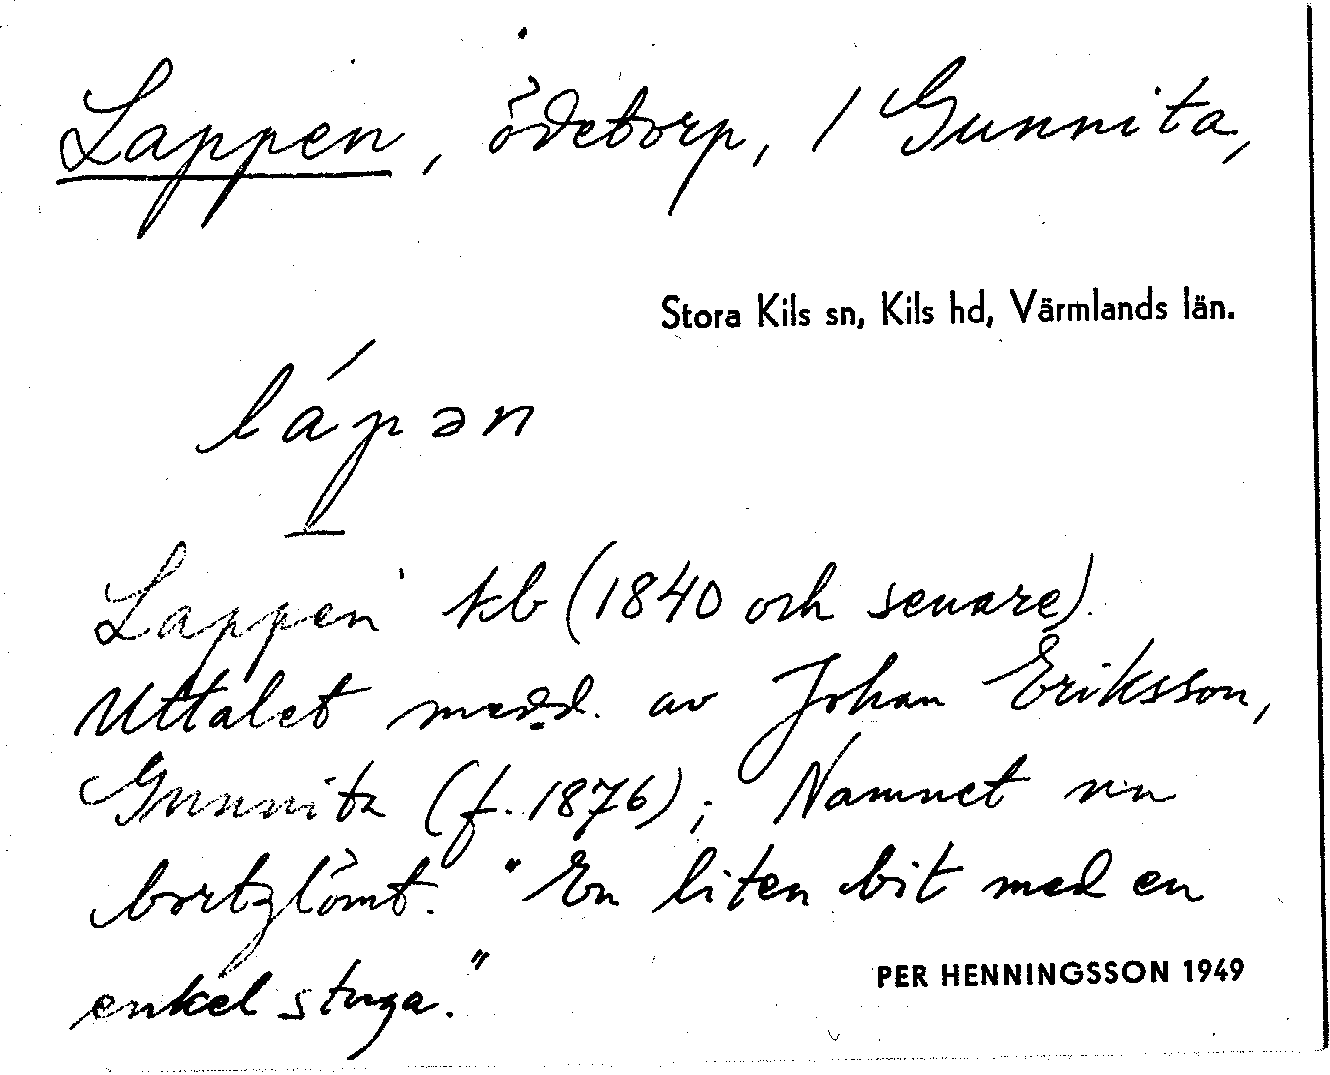 Lappen, ödetorp, / Gunnita,
Stora Kils sn, Kils hd, Värmlands län.
lápən
Lappen kb (1840 och senare).
Uttalet medd. av Johan Eriksson,
Gunnita (f. 1876); Namnet nu
bortglömt. "En liten bit med en
enkel stuga."
PER HENNINGSSON 1949